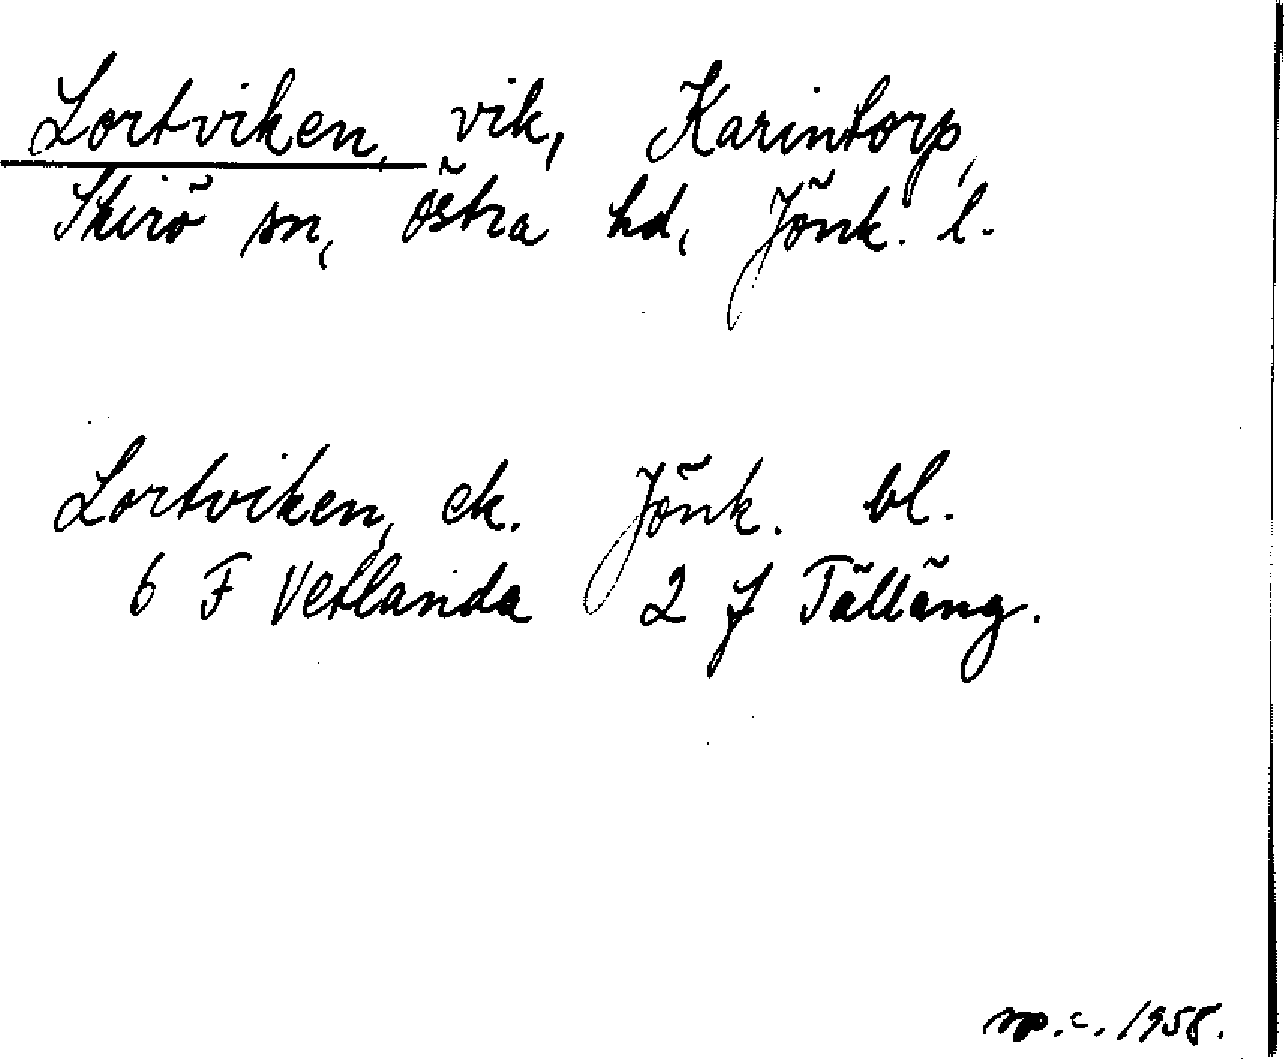 Lortviken, vik, Karintorp,
Skirö sn, Östra hd, Jönk. l.
Lortviken, ek. Jönk. bl.
6 F Vetlanda 2 f Tälläng.
op.c. 1958.